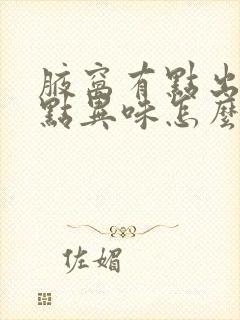 腋窩有點出
點異味怎麼
佐媚